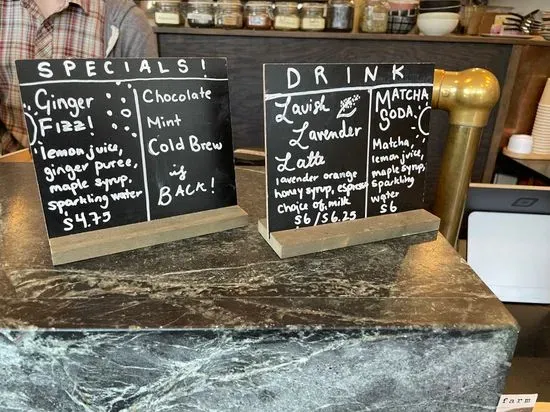 SPECIALS!
Ginger
Fizz!
lemon juice,
ginger puree,
maple syrup,
sparkling water
$4.75
Chocolate
Mint
Cold Brew
is
BACK!
DRINK
Lavish
Lavender
Latte
lavender orange
honey syrup, espresso
choice of milk
$6/$6.25
MATCHA
SODA
Matcha,
lemon juice,
maple syrup,
sparkling
water
$6
farm